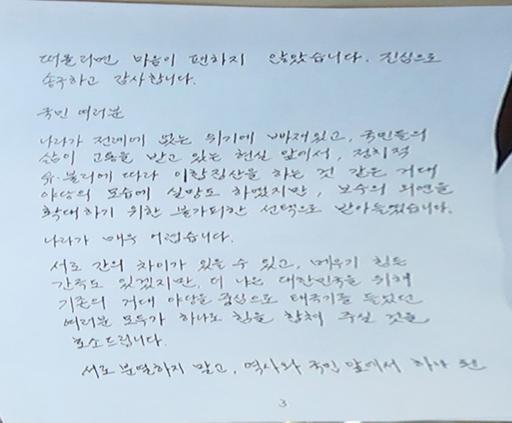 떠올리면 마음이 편하지 않았습니다. 진심으로
송구하고 감사합니다.
국민 여러분
나라가 전례에 없는 위기에 빠져있고, 국민들의
삶이 고통을 받고 있는 현실 앞에서, 정치적
유·불리에 따라 이합집산을 하는 것 같은 거대
야당의 모습에 실망도 하였지만, 보수의 외연을
확대하기 위한 불가피한 선택으로 받아들였습니다.
나라가 매우 어렵습니다.
서로 간의 차이가 있을 수 있고, 메우기 힘든
간극도 있겠지만, 더 나은 대한민국을 위해
기존의 거대 야당을 중심으로 태극기를 들었던
여러분 모두가 하나로 힘을 합쳐 주실 것을
호소드립니다.
서로 분열하지 말고, 역사와 국민 앞에서 하나 된
3